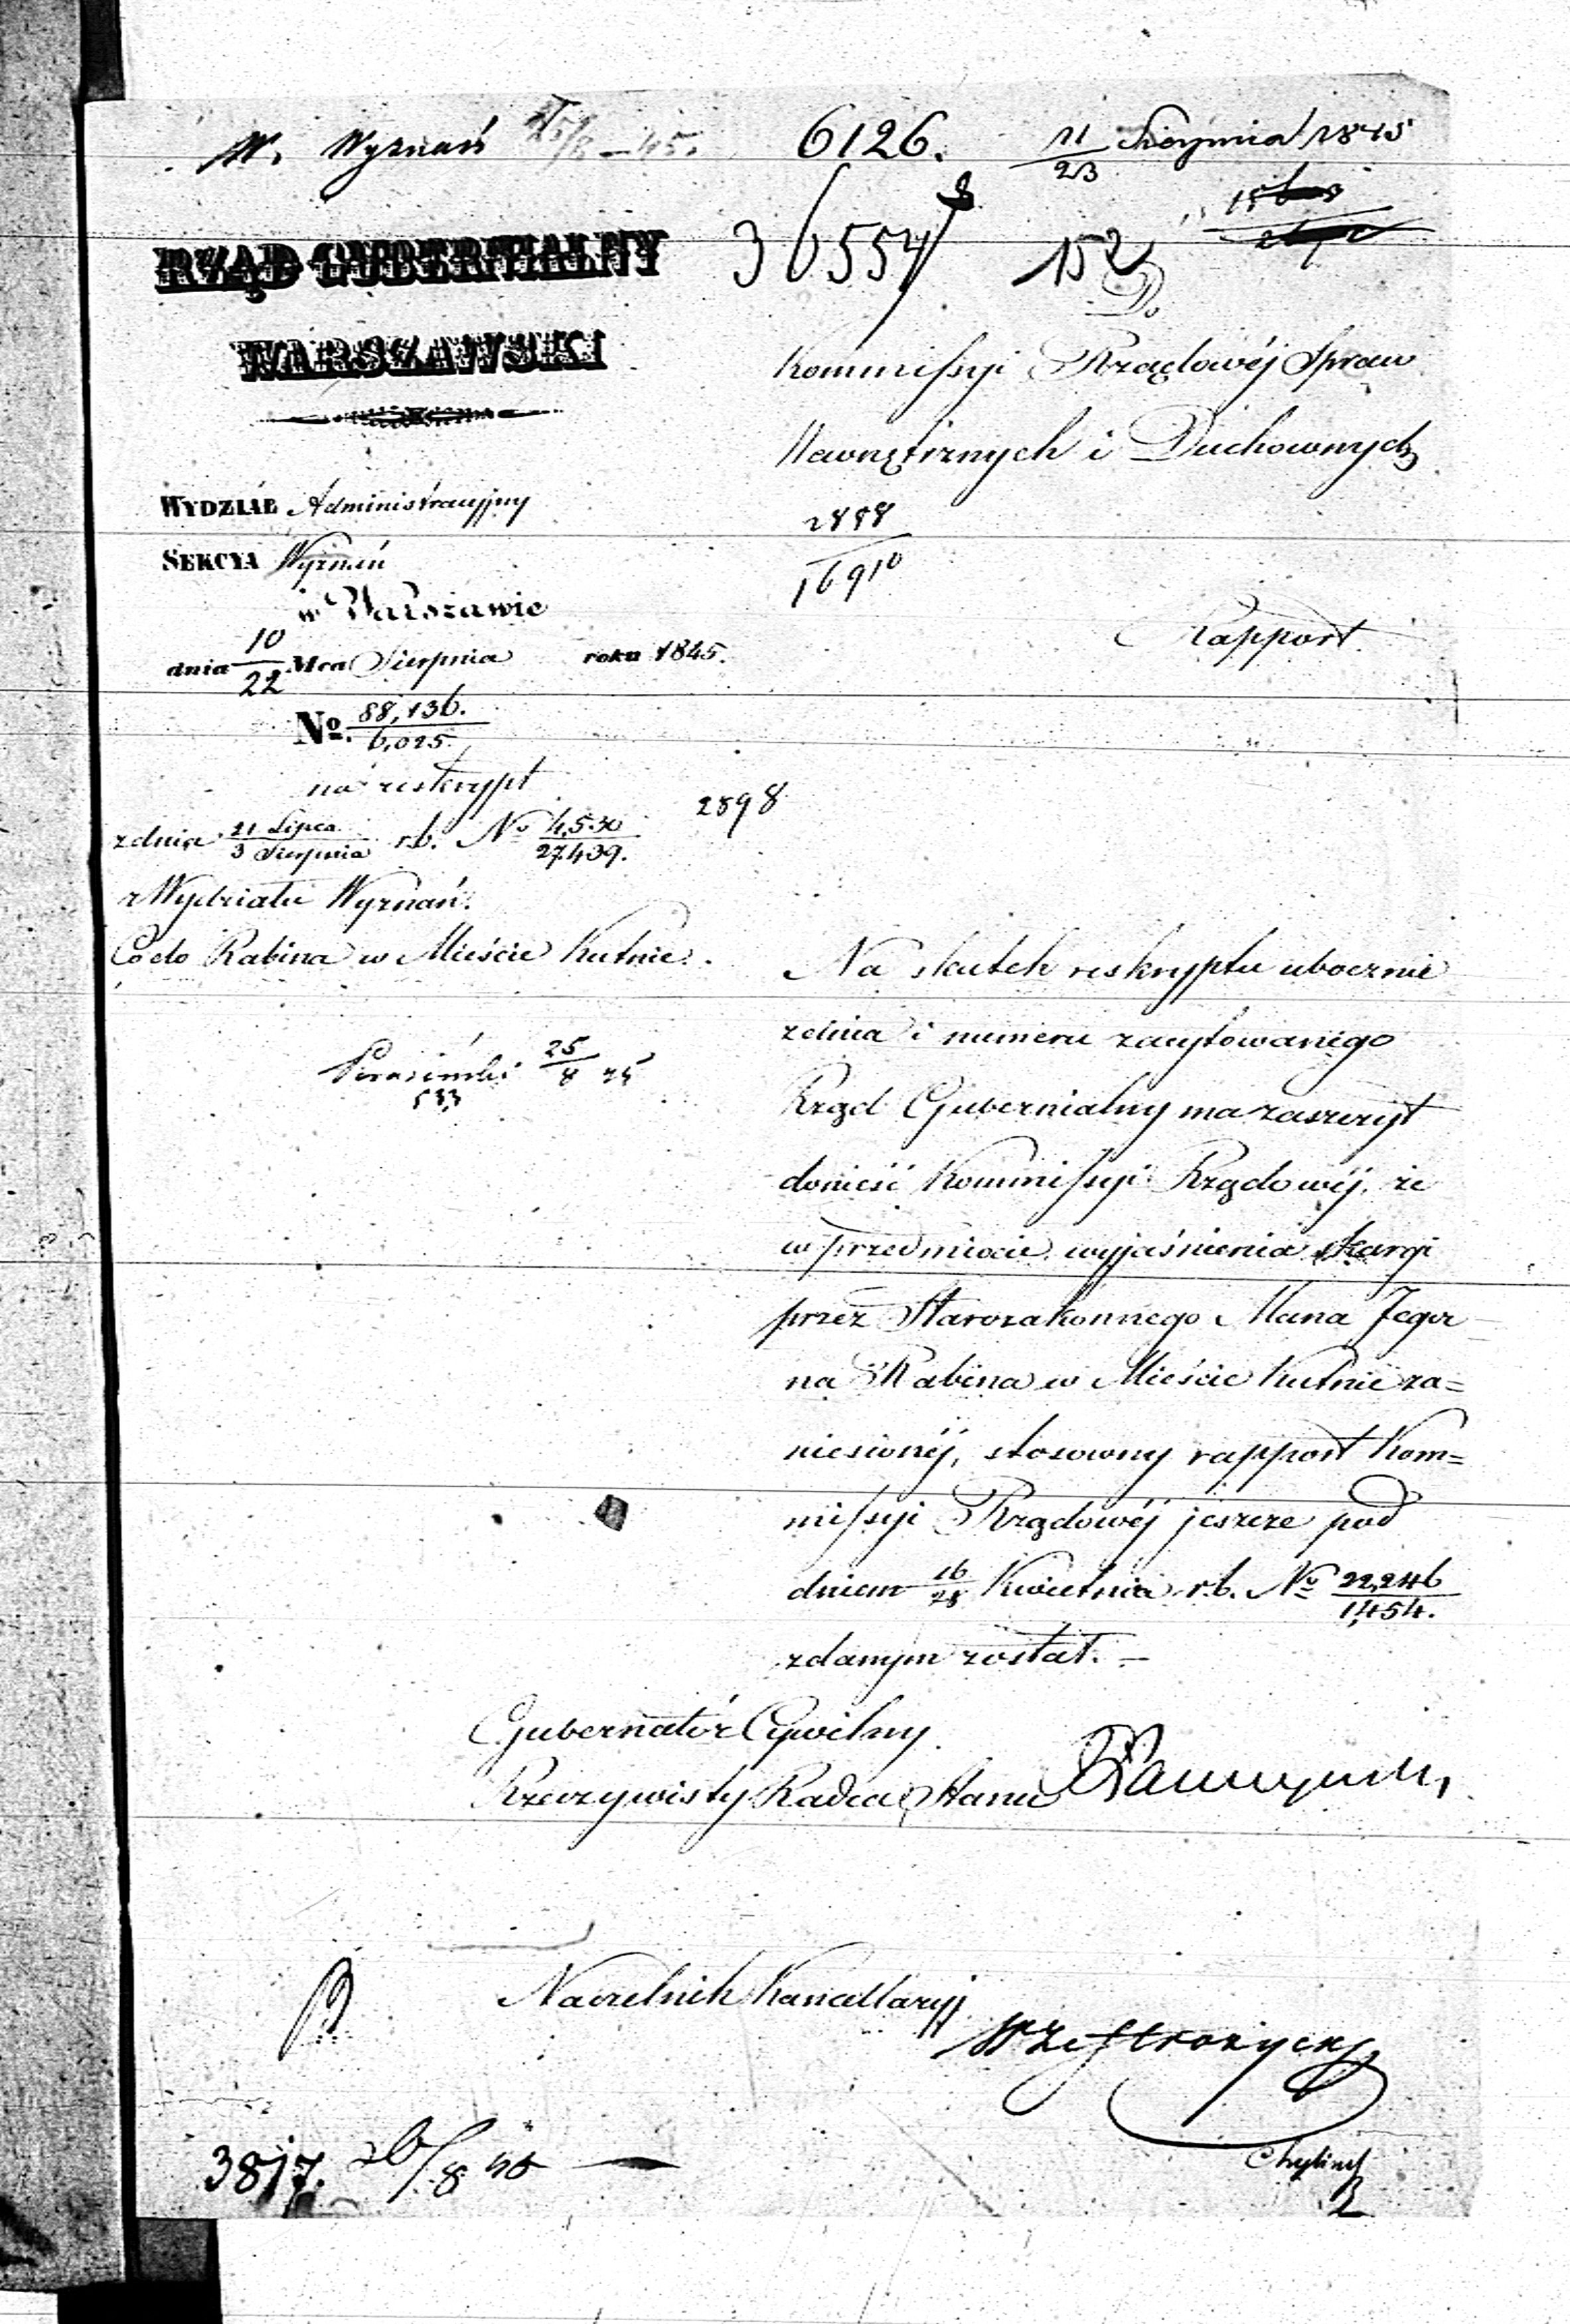 W. Wyznań 25/8 – 45.
6126.
11/23 Sierpnia 1845
36554
152
RZĄD GUBERNIALNY
WARSZAWSKI
Do
Kommissyi Rządowéj Spraw
Wewnętrznych i Duchownych
WYDZIAŁ Administracyjny
SEKCYA Wyznań
w Warszawie
dnia 10/22 Mca Sierpnia roku 1845.
No. 88,136./6,025.
16910
Rapport
na reskrypt
z dnia 21 Lipca/3 Sierpnia r.b. No 4,530/27.439.
z Wydziału Wyznań.
Co do Rabina w Mieście Kutnie.
2898
25/8 45
533
Na skutek reskryptu ubocznie
z dnia i numeru zacytowanego
Rząd Gubernialny ma zaszczyt
donieść Kommissyi Rządowéj, że
w przedmiocie wyjaśnienia skargi
przez Starozakonnego Mana Jeger
na Rabina w Mieście Kutnie za=
niesionéj, stosowny rapport Kom=
missyi Rządowéj jeszcze pod
dniem 16/28 Kwietnia r.b. No 22,246/1,454.
zdanym został. –
Gubernator Cywilny
Rzeczywisty Radca Stanu
Naczelnik Kancellaryj
3817. 26/8 45 —